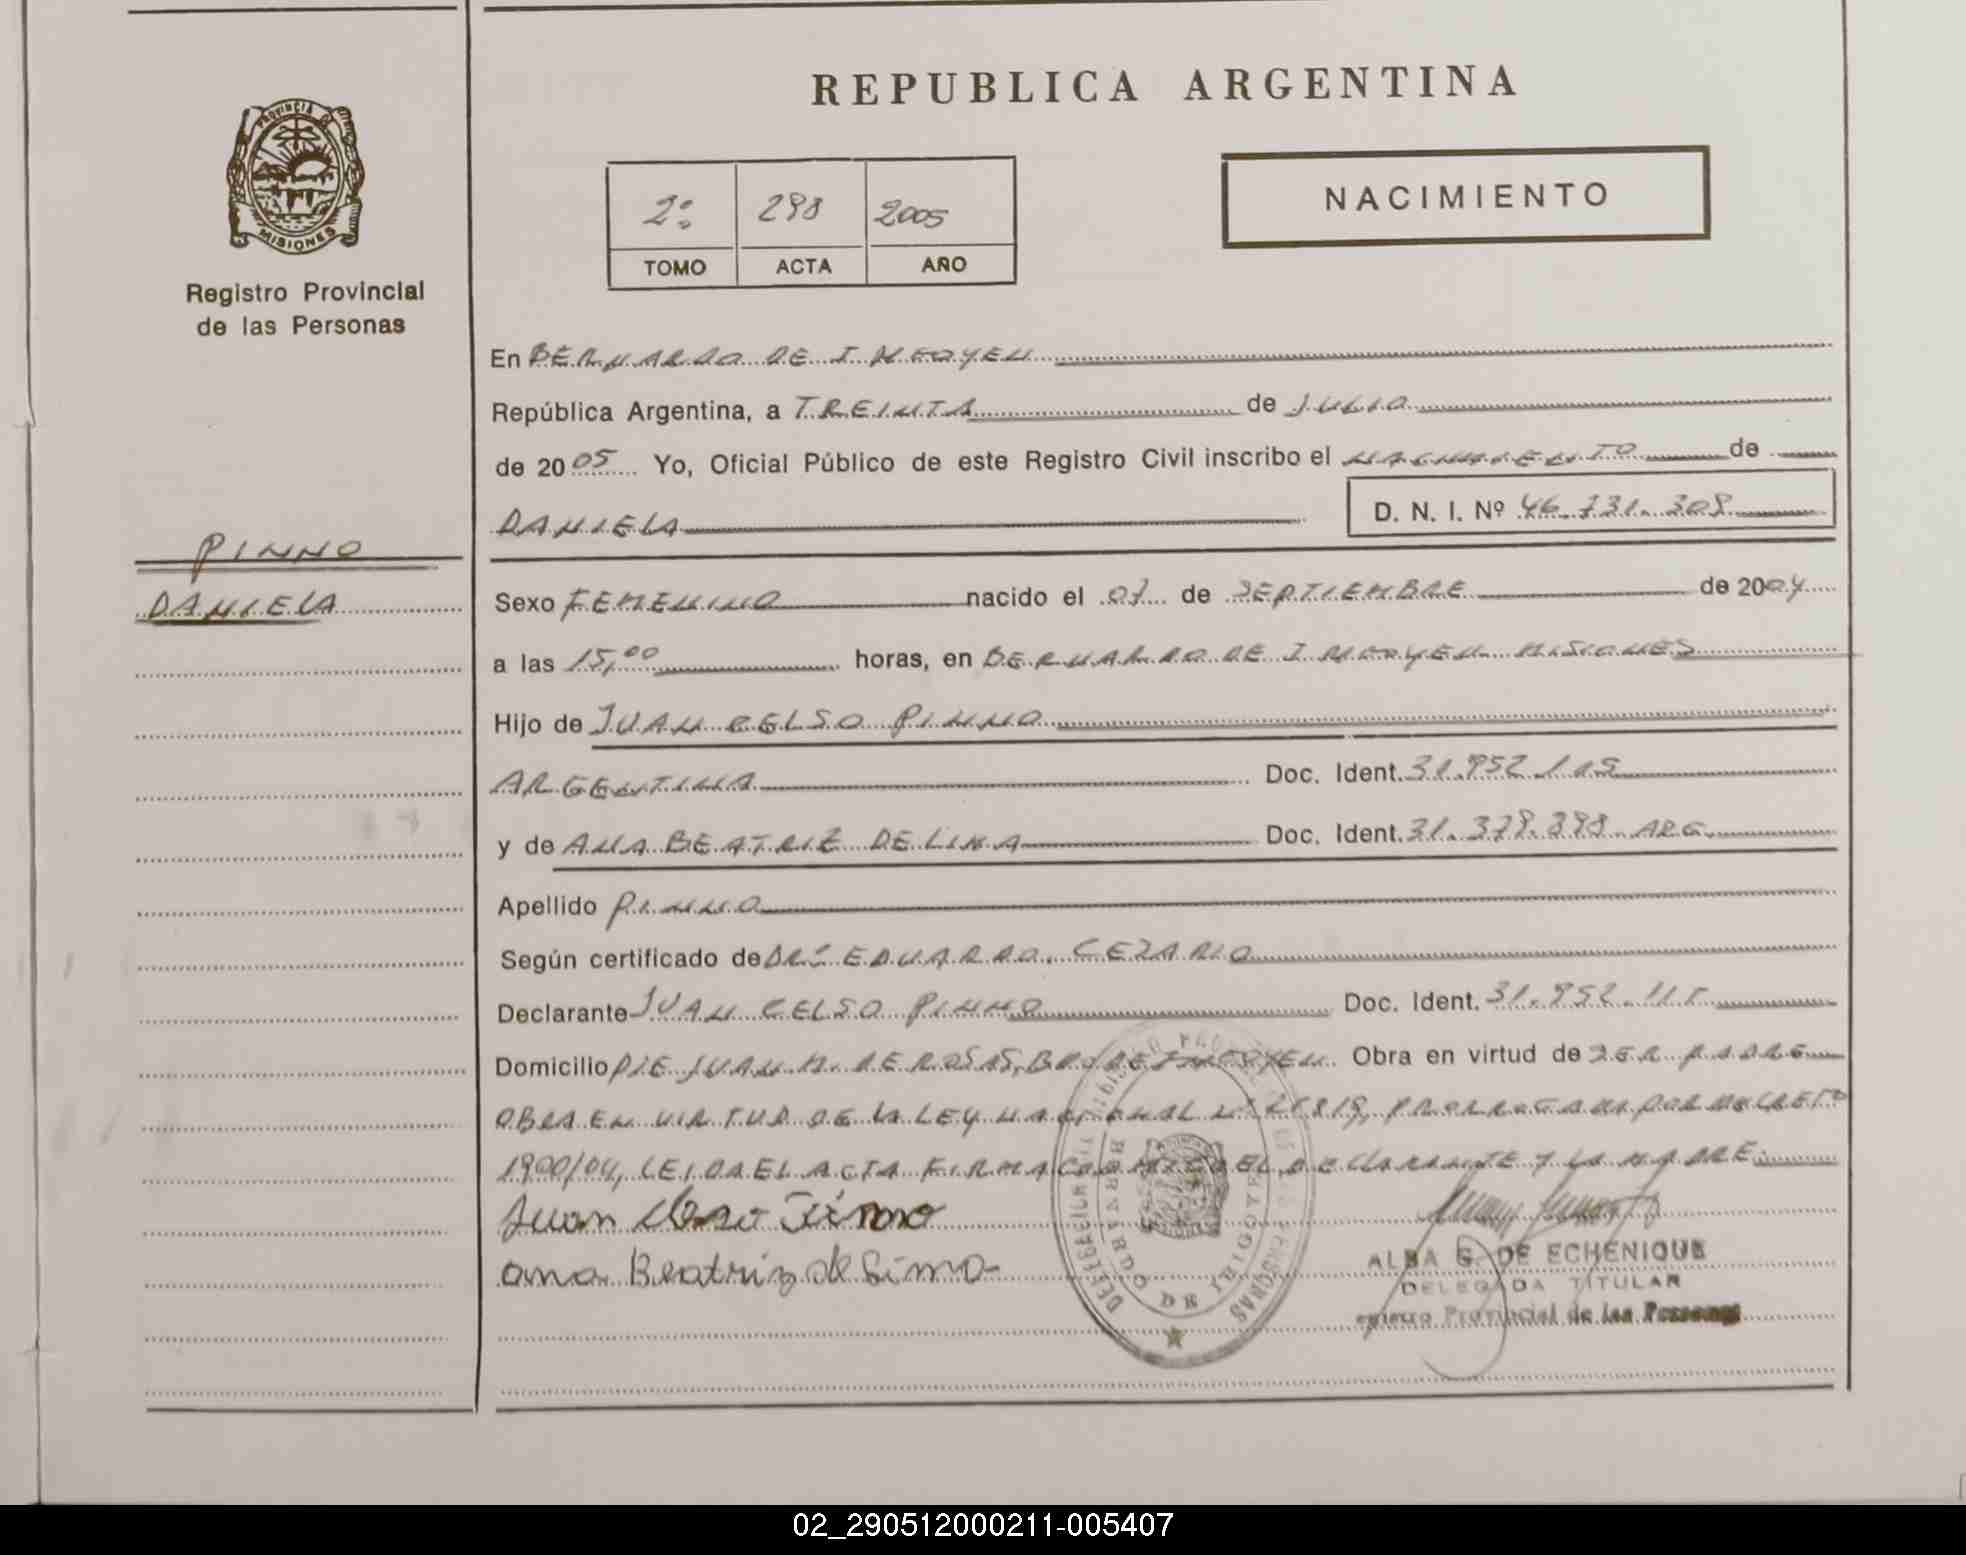 REPUBLICA ARGENTINA
PROVINCIA DE
MISIONES
Registro Provincial
de las Personas
2º 298 2005
TOMO ACTA AÑO
NACIMIENTO
En BERNARDO DE IRIGOYEN
República Argentina, a TREINTA de JULIO
de 2005 Yo, Oficial Público de este Registro Civil inscribo el NACIMIENTO de
DANIELA
D. N. I. Nº 46.731.308
PINNO
DANIELA
Sexo FEMENINO nacido el 07 de SEPTIEMBRE de 2004
a las 15,00 horas, en BERNARDO DE IRIGOYEN MISIONES
Hijo de JUAN CELSO PINNO
ARGENTINA Doc. Ident. 31.952.115
y de ANA BEATRIZ DE LIMA Doc. Ident. 31.378.398 ARG.
Apellido PINNO
Según certificado de DR. EDUARDO CEZARIO
Declarante JUAN CELSO PINNO Doc. Ident. 31.952.115
Domicilio PJE JUAN M. DE ROSAS, BDO DE IRIGOYEN Obra en virtud de SER PADRE
OBRA EN VIRTUD DE LA LEY NACIONAL Nº 25819, PRORROGADA POR DECRETO
1900/04, LEIDA EL ACTA FIRMA CONMIGO EL DECLARANTE Y LA MADRE.
Juan Celso Pinno
ana Beatriz de Lima
BERNARDO DE IRIGOYEN
ALBA G. DE ECHENIQUE
DELEGADA TITULAR
Provincial de las Personas
02_290512000211-005407